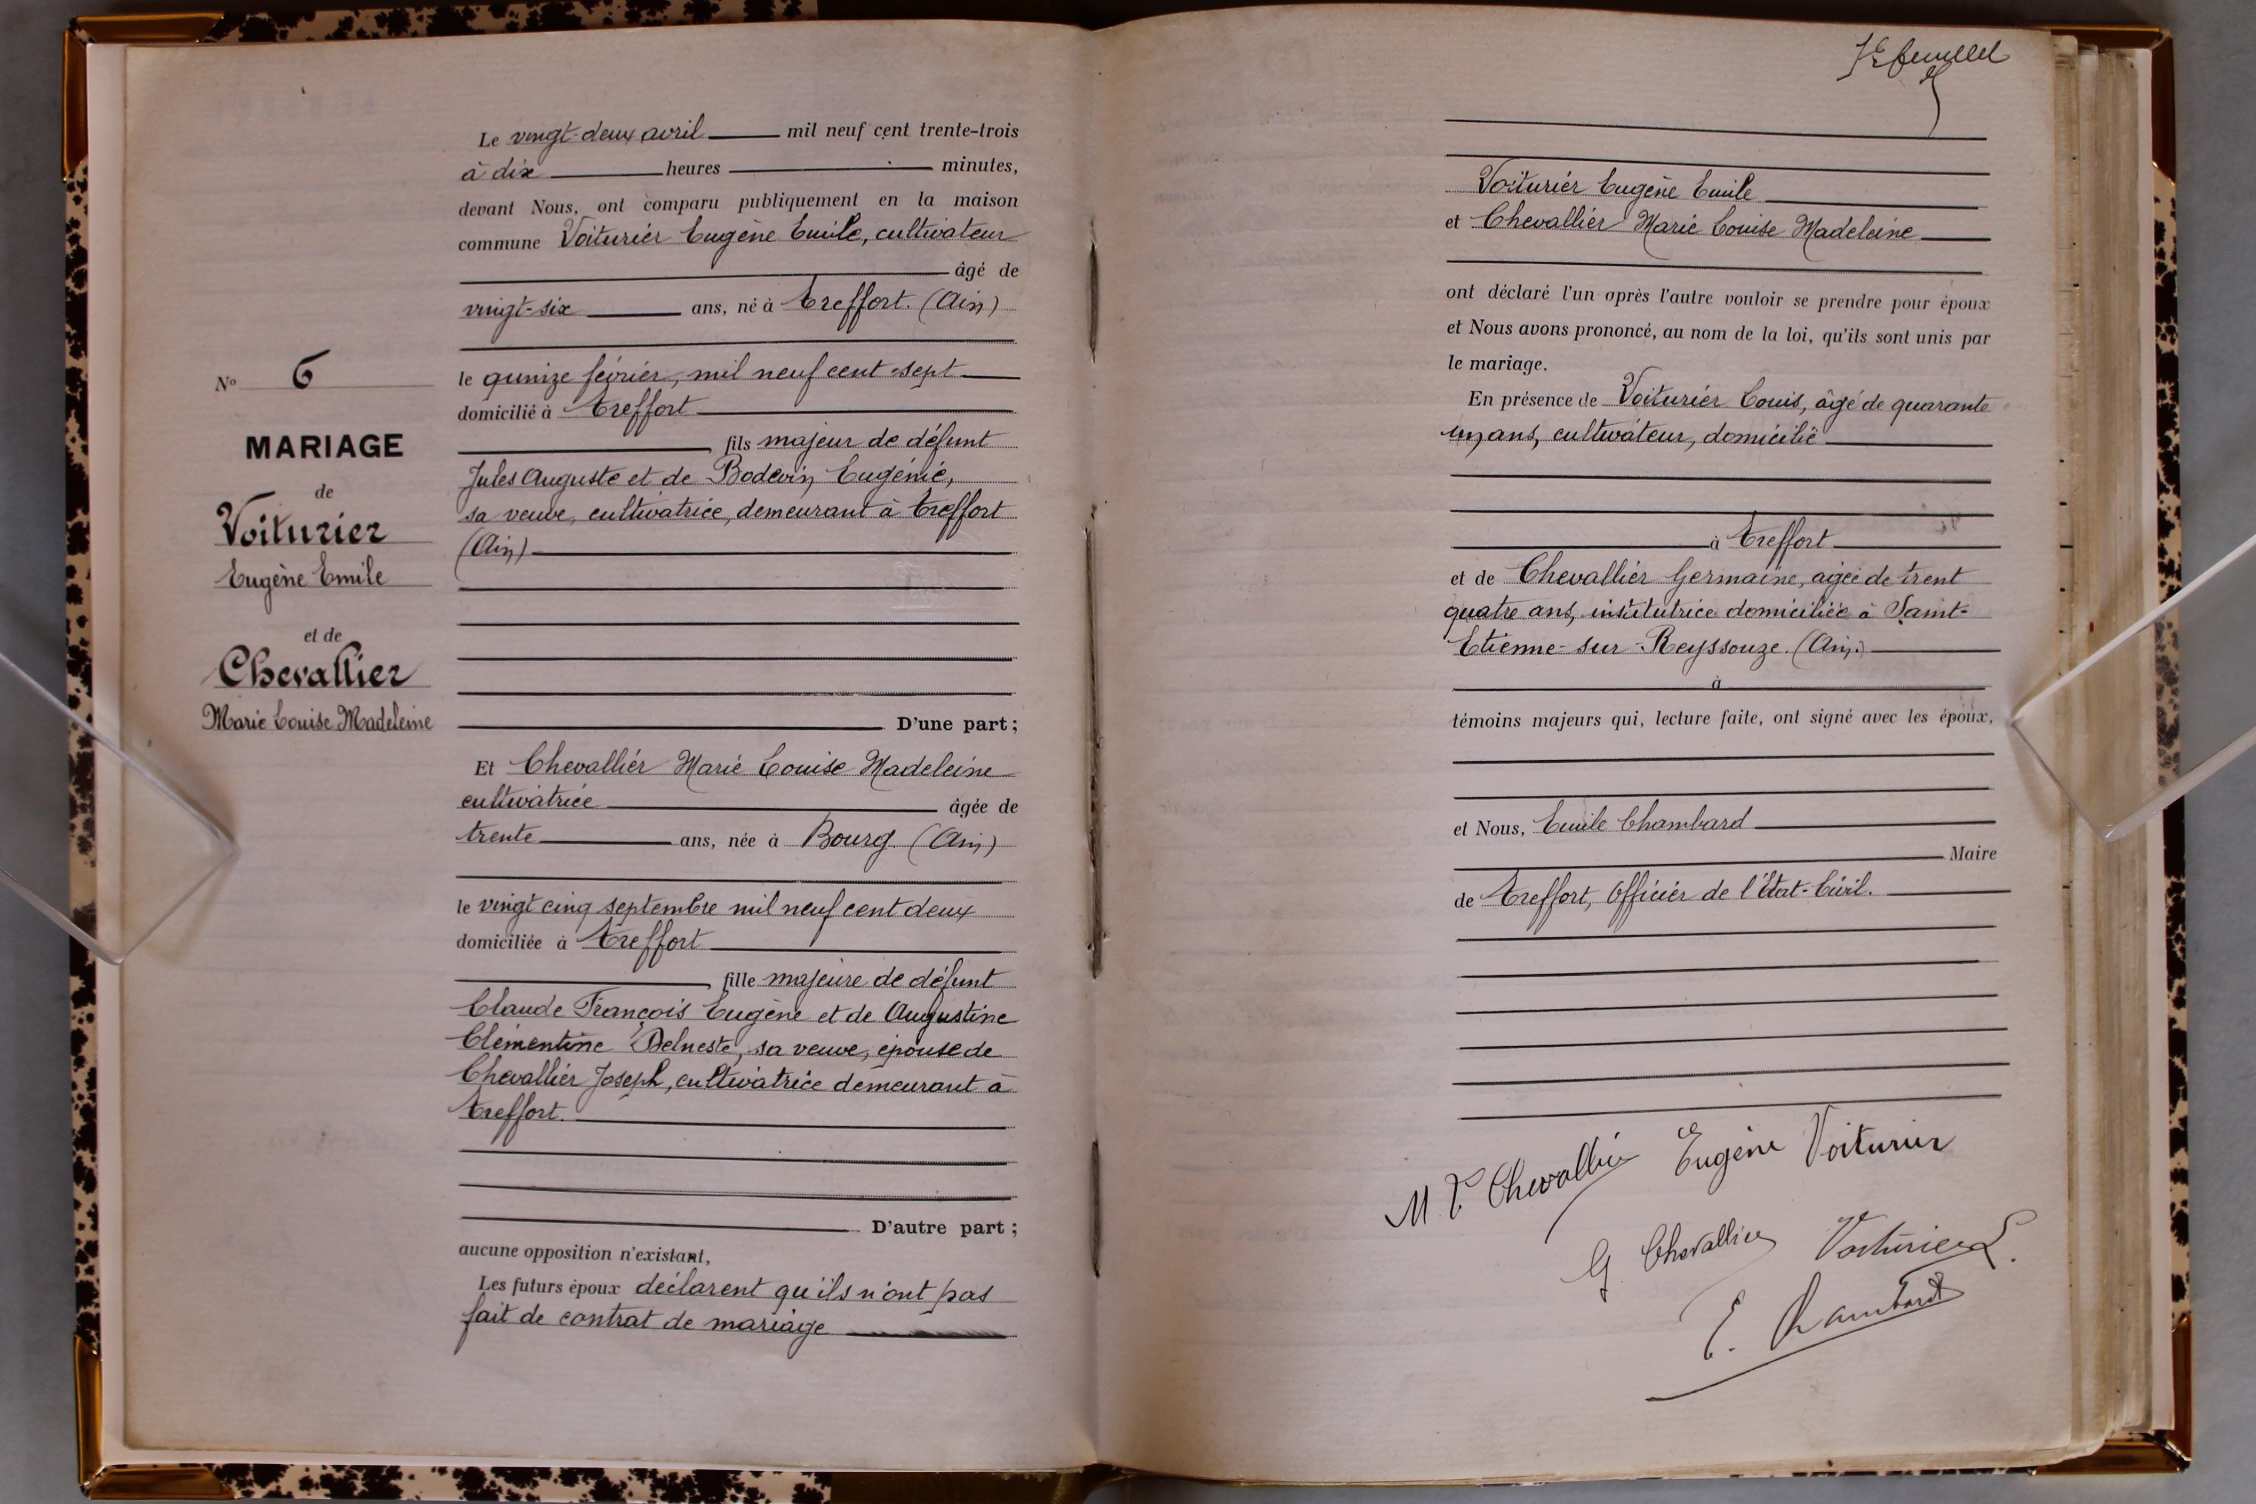 Nº 6
MARIAGE
de
Voiturier
Eugène Emile
et de
Chevallier
Marie Louise Madeleine
Le vingt-deux avril mil neuf cent trente-trois
à dix heures minutes,
devant Nous, ont comparu publiquement en la maison
commune Voiturier Eugène Emile, cultivateur
âgé de
vingt-six ans, né à Treffort. (Ain)
le quinze février, mil neuf cent sept
domicilié à Treffort
, fils majeur de défunt
Jules Auguste et de Bodevin Eugénie,
sa veuve, cultivatrice, demeurant à Treffort
(Ain)
D'une part ;
Et Chevallier Marie Louise Madeleine
cultivatrice âgée de
trente ans, née à Bourg (Ain)
le vingt cinq septembre mil neuf cent deux
domiciliée à Treffort
, fille majeure de défunt
Claude François Eugène et de Augustine
Clémentine Delneste, sa veuve, épouse de
Chevallier Joseph, cultivatrice demeurant à
Treffort.
D'autre part ;
aucune opposition n'existant,
Les futurs époux déclarent qu'ils n'ont pas
fait de contrat de mariage
feuillet
Voiturier Eugène Emile
et Chevallier Marie Louise Madeleine
ont déclaré l'un après l'autre vouloir se prendre pour époux
et Nous avons prononcé, au nom de la loi, qu'ils sont unis par
le mariage.
En présence de Voiturier Louis, âgé de quarante
un ans, cultivateur, domicilié
à Treffort
et de Chevallier Germaine, agée de trent
quatre ans, institutrice domiciliée à Saint-
Etienne-sur-Reyssouze. (Ain.)
à
témoins majeurs qui, lecture faite, ont signé avec les époux,
et Nous, Emile Chambard
Maire
de Treffort, Officier de l'Etat-Civil.
M L Chevallier Eugène Voiturier
G. Chevallier Voiturier L.
E. Chambard